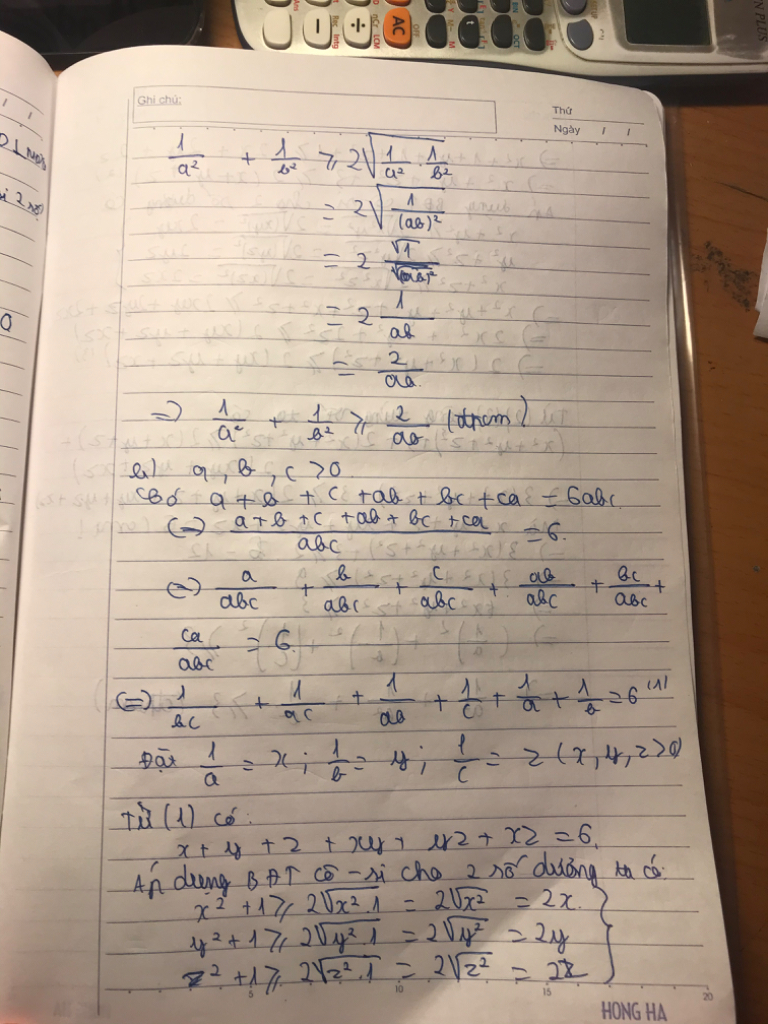 Ghi chú:
Thứ
Ngày / /
1/a² + 1/b² ≥ 2√(1/a² · 1/b²)
= 2√(1/(ab)²)
= 2 √1/√(ab)²
= 2 1/ab
= 2/ab
=) 1/a² + 1/b² ≥ 2/ab (đpcm)
b) a, b, c >0
Có a + b + c + ab + bc + ca = 6abc
(=) (a + b + c + ab + bc + ca)/abc = 6.
(=) a/abc + b/abc + c/abc + ab/abc + bc/abc +
ca/abc = 6
(=) 1/bc + 1/ac + 1/ab + 1/c + 1/a + 1/b = 6 (1)
Đặt 1/a = x ; 1/b = y ; 1/c = z (x, y, z >0)
Từ (1) có:
x + y + z + xy + yz + xz = 6.
Áp dụng BĐT cô-si cho 2 số dương ta có:
x² + 1 ≥ 2√(x².1) = 2√x² = 2x.
y² + 1 ≥ 2√(y².1) = 2√y² = 2y
z² + 1 ≥ 2√(z².1) = 2√z² = 2z
5 10 15 20
HONG HA